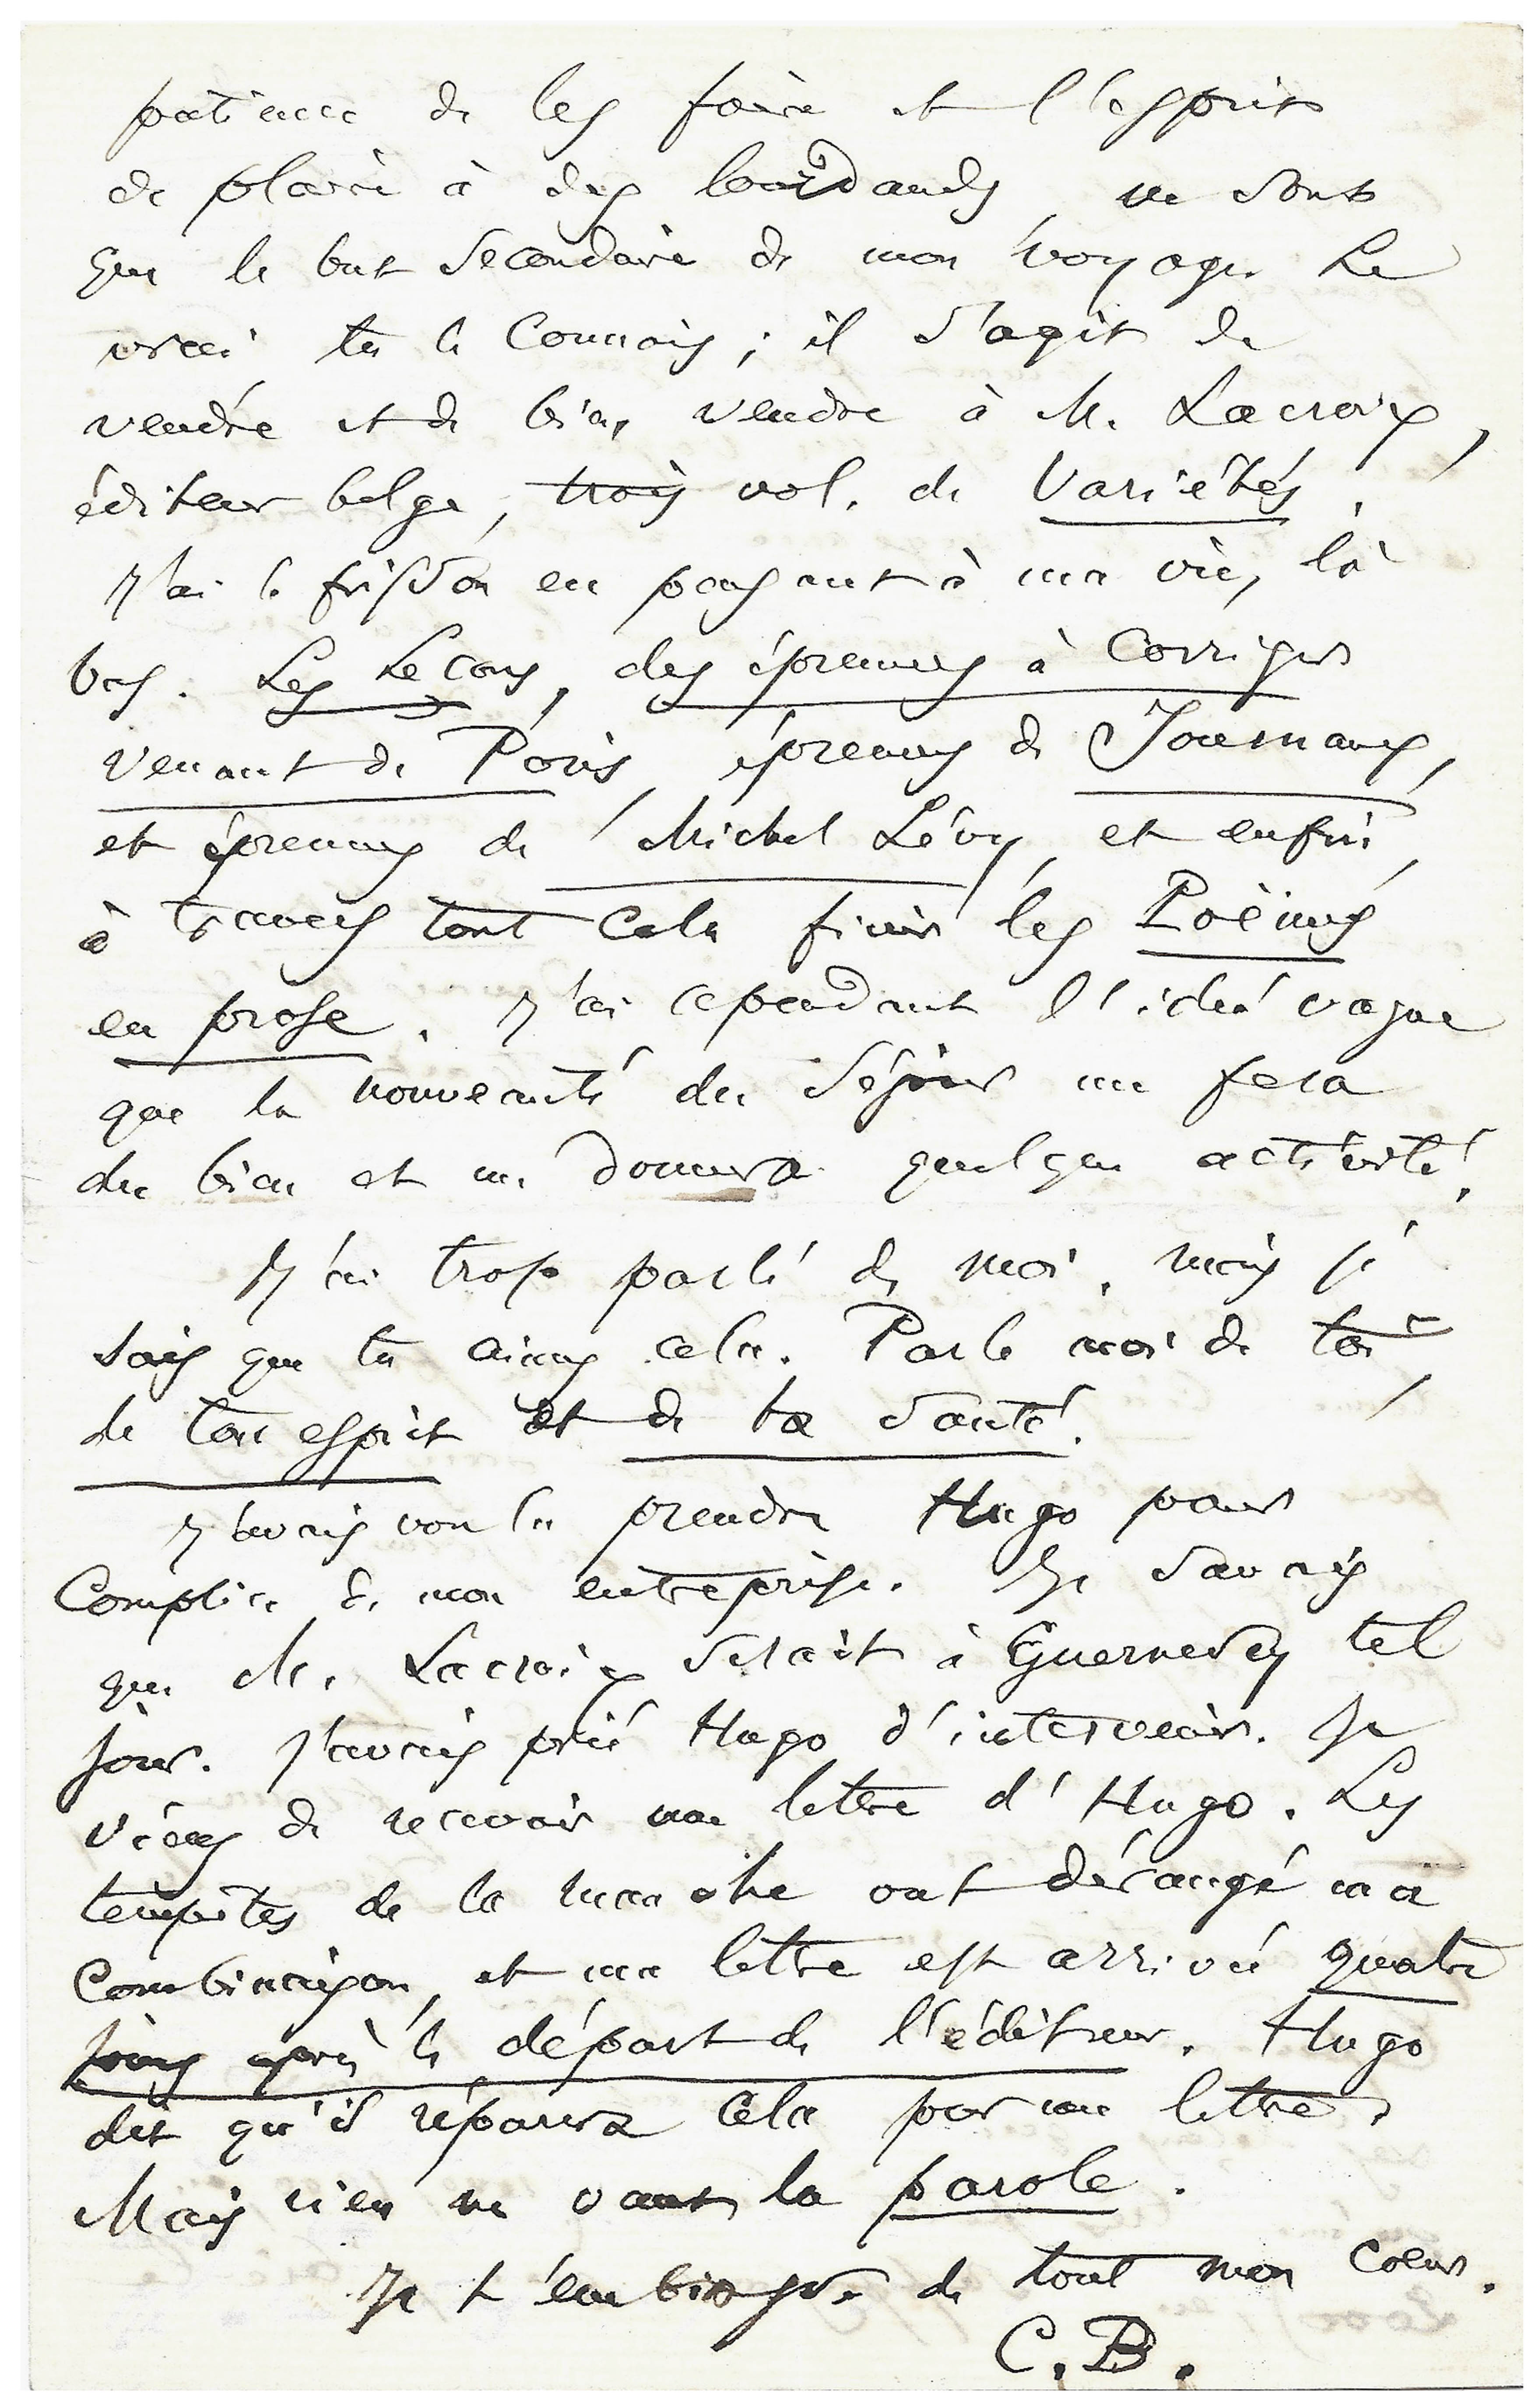 patience de les faire et l'esprit
de plaire à des lourdauds, ne sont
que le but secondaire de mon voyage. Le
vrai tu le connais ; il s'agit de
vendre et de bien vendre à M. Lacroix,
éditeur belge, trois vol. de Variétés.
J'ai le frisson en pensant à ma vie, là
bas. Les Leçons, des épreuves à corriger
venant de Paris, épreuves de Journaux,
et épreuves de Michel Lévy, et enfin,
à travers tout cela finir les Poëmes
en prose. J'ai cependant l'idée vague
que la nouveauté du séjour me fera
du bien et me donnera quelque activité.
J'ai trop parlé de moi, mais je
sais que tu aimes cela. Parle moi de toi,
de ton esprit et de ta santé.
J'avais voulu prendre Hugo pour
complice de mon entreprise. Je savais
que M. Lacroix serait à Guernesey tel
jour. J'avais prié Hugo d'intervenir. Je
viens de recevoir une lettre d'Hugo. Les
tempêtes de la manche ont dérangé ma
combinaison, et ma lettre est arrivée quatre
jours après le départ de l'éditeur. Hugo
dit qu'il réparera cela par une lettre.
Mais rien ne vaut la parole.
Je t'embrasse de tout mon coeur.
C. B.